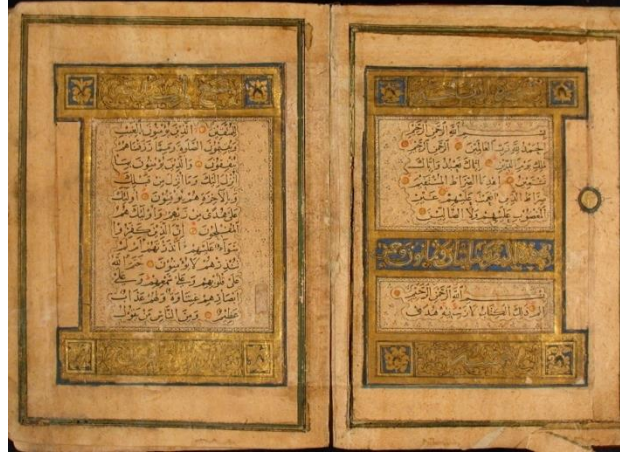 بسم الله الرحمن الرحيم
الحمد لله رب العالمين الرحمن الرحيم
ملك يوم الدين إياك نعبد وإياك
نستعين اهدنا الصراط المستقيم
صراط الذين أنعمت عليهم غير
المغضوب عليهم ولا الضالين
بسم الله الرحمن الرحيم
الم ذلك الكتاب لا ريب فيه هدى
للمتقين الذين يؤمنون بالغيب
ويقيمون الصلوة ومما رزقناهم
ينفقون والذين يؤمنون بما
أنزل إليك وما أنزل من قبلك
وبالآخرة هم يوقنون أولئك
على هدى من ربهم وأولئك هم
المفلحون إن الذين كفروا
سواء عليهم أأنذرتهم أم لم
تنذرهم لا يؤمنون ختم الله
على قلوبهم وعلى سمعهم وعلى
أبصارهم غشاوة ولهم عذاب
عظيم ومن الناس من يقول